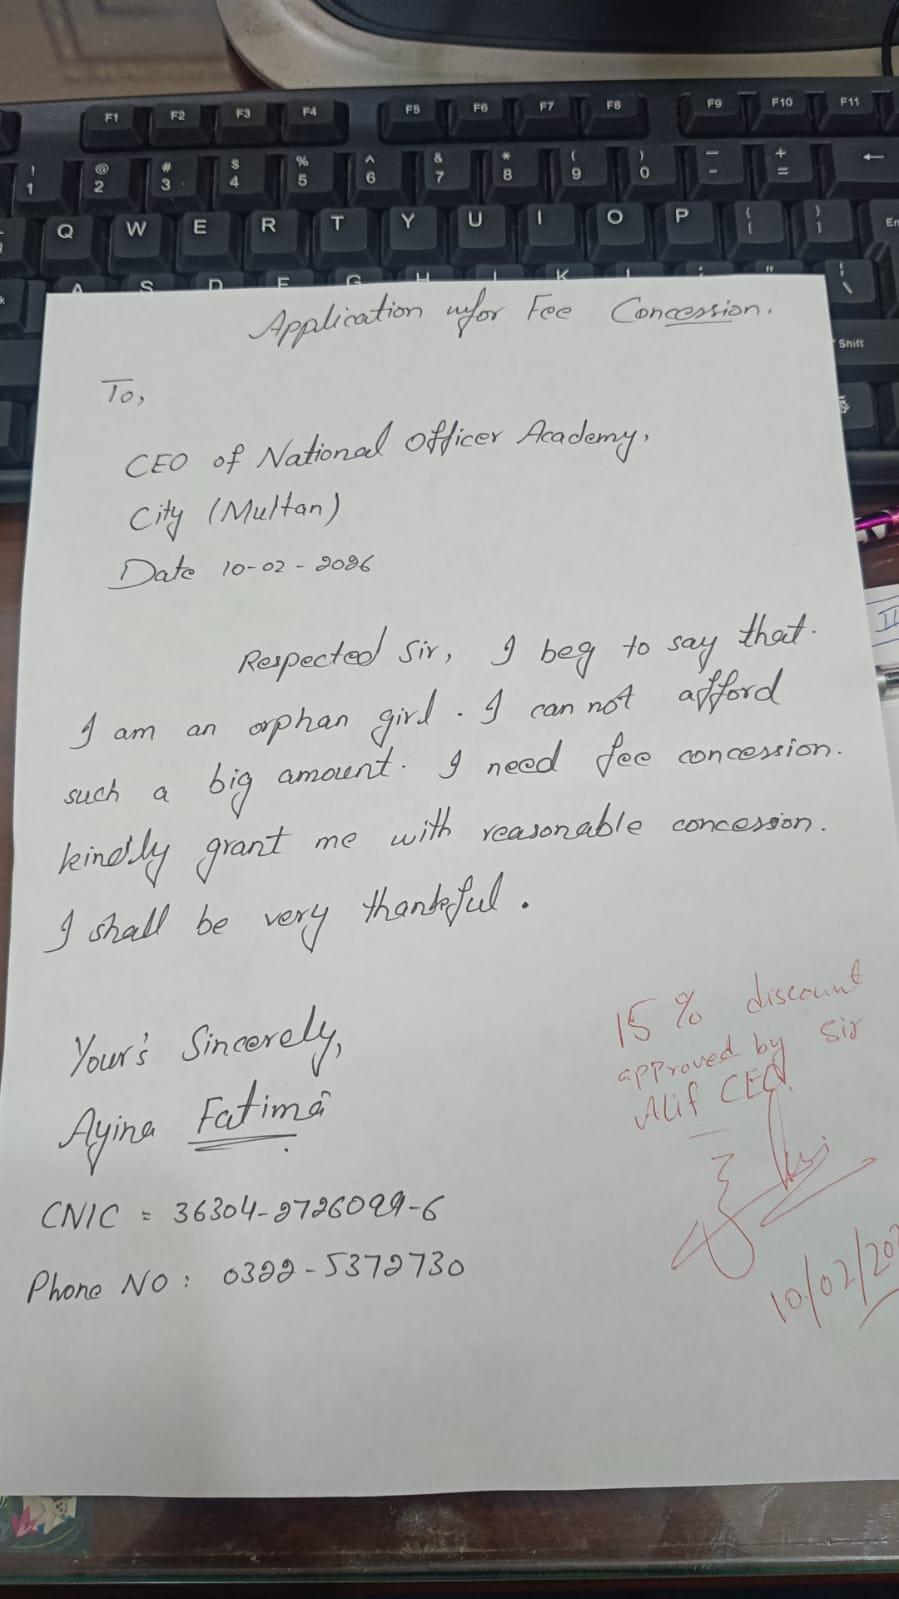 F1 F2 F3 F4 F5 F6 F7 F8 F9 F10 F11
! @ # $ % ^ & * ( ) _ +
1 2 3 4 5 6 7 8 9 0 - =
Q W E R T Y U I O P
A S D F G H K
Shift
Application for Fee Concession.
To,
CEO of National Officer Academy,
City (Multan)
Date 10-02-2026
Respected Sir, I beg to say that.
I am an orphan girl. I can not afford
such a big amount. I need fee concession.
kindly grant me with reasonable concession.
I shall be very thankful.
Your's Sincerely,
Ayina Fatima
CNIC = 36304-2726099-6
Phone NO: 0322-5372730
15% discount
approved by Sir
Alif CEO.
10/02/20